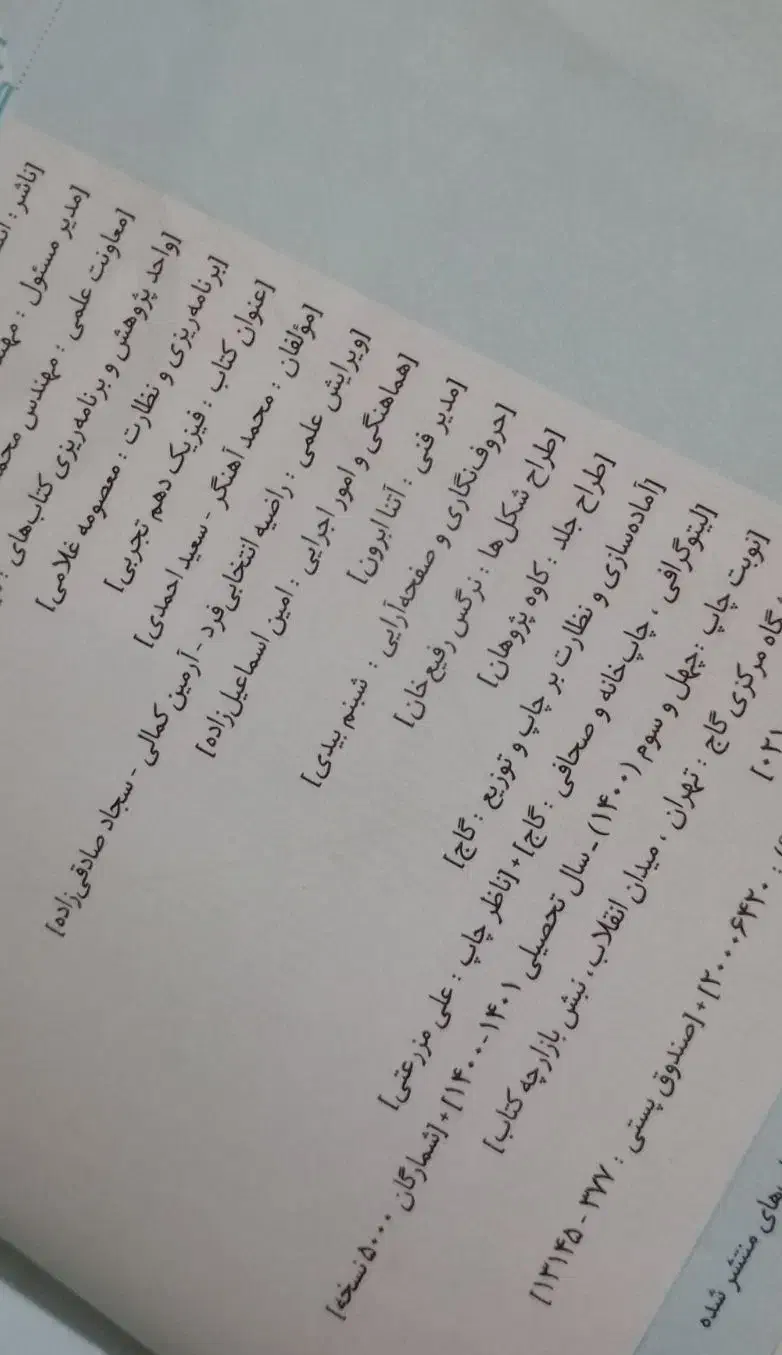 [ناشر :
[مدیر مسئول :
[معاونت علمی : مهندس
[واحد پژوهش و برنامه‌ریزی کتاب‌های :
[برنامه‌ریزی و نظارت : معصومه غلامی]
[عنوان کتاب : فیزیک دهم تجربی]
[مؤلفان : محمد آهنگر - سعید احمدی]
[ویرایش علمی : راضیه انتخابی‌فرد - آرمین کمالی - سجاد صادقی‌زاده]
[هماهنگی و امور اجرایی : امین اسماعیل‌زاده]
[مدیر فنی : آتنا ابرون]
[حروف‌نگاری و صفحه‌آرایی : شبنم بیدی]
[طراح شکل‌ها : نرگس رفیع‌خان]
[طراح جلد : کاوه پژوهان]
[آماده‌سازی و نظارت بر چاپ و توزیع : گاج]
[لیتوگرافی ، چاپ‌خانه و صحافی : گاج]+[ناظر چاپ : علی مزرعتی]
[نوبت چاپ : چهل و سوم (۱۴۰۰) - سال تحصیلی ۱۴۰۱-۱۴۰۰]+[شمارگان ۵۰۰۰ نسخه]
مرکزی گاج : تهران ، میدان انقلاب، نبش بازارچه کتاب]
۰۲۱]
: ۲۰۰۰۶۴۲۰]+[صندوق پستی : ۳۷۷ - ۱۳۱۴۵]
منتشر شده